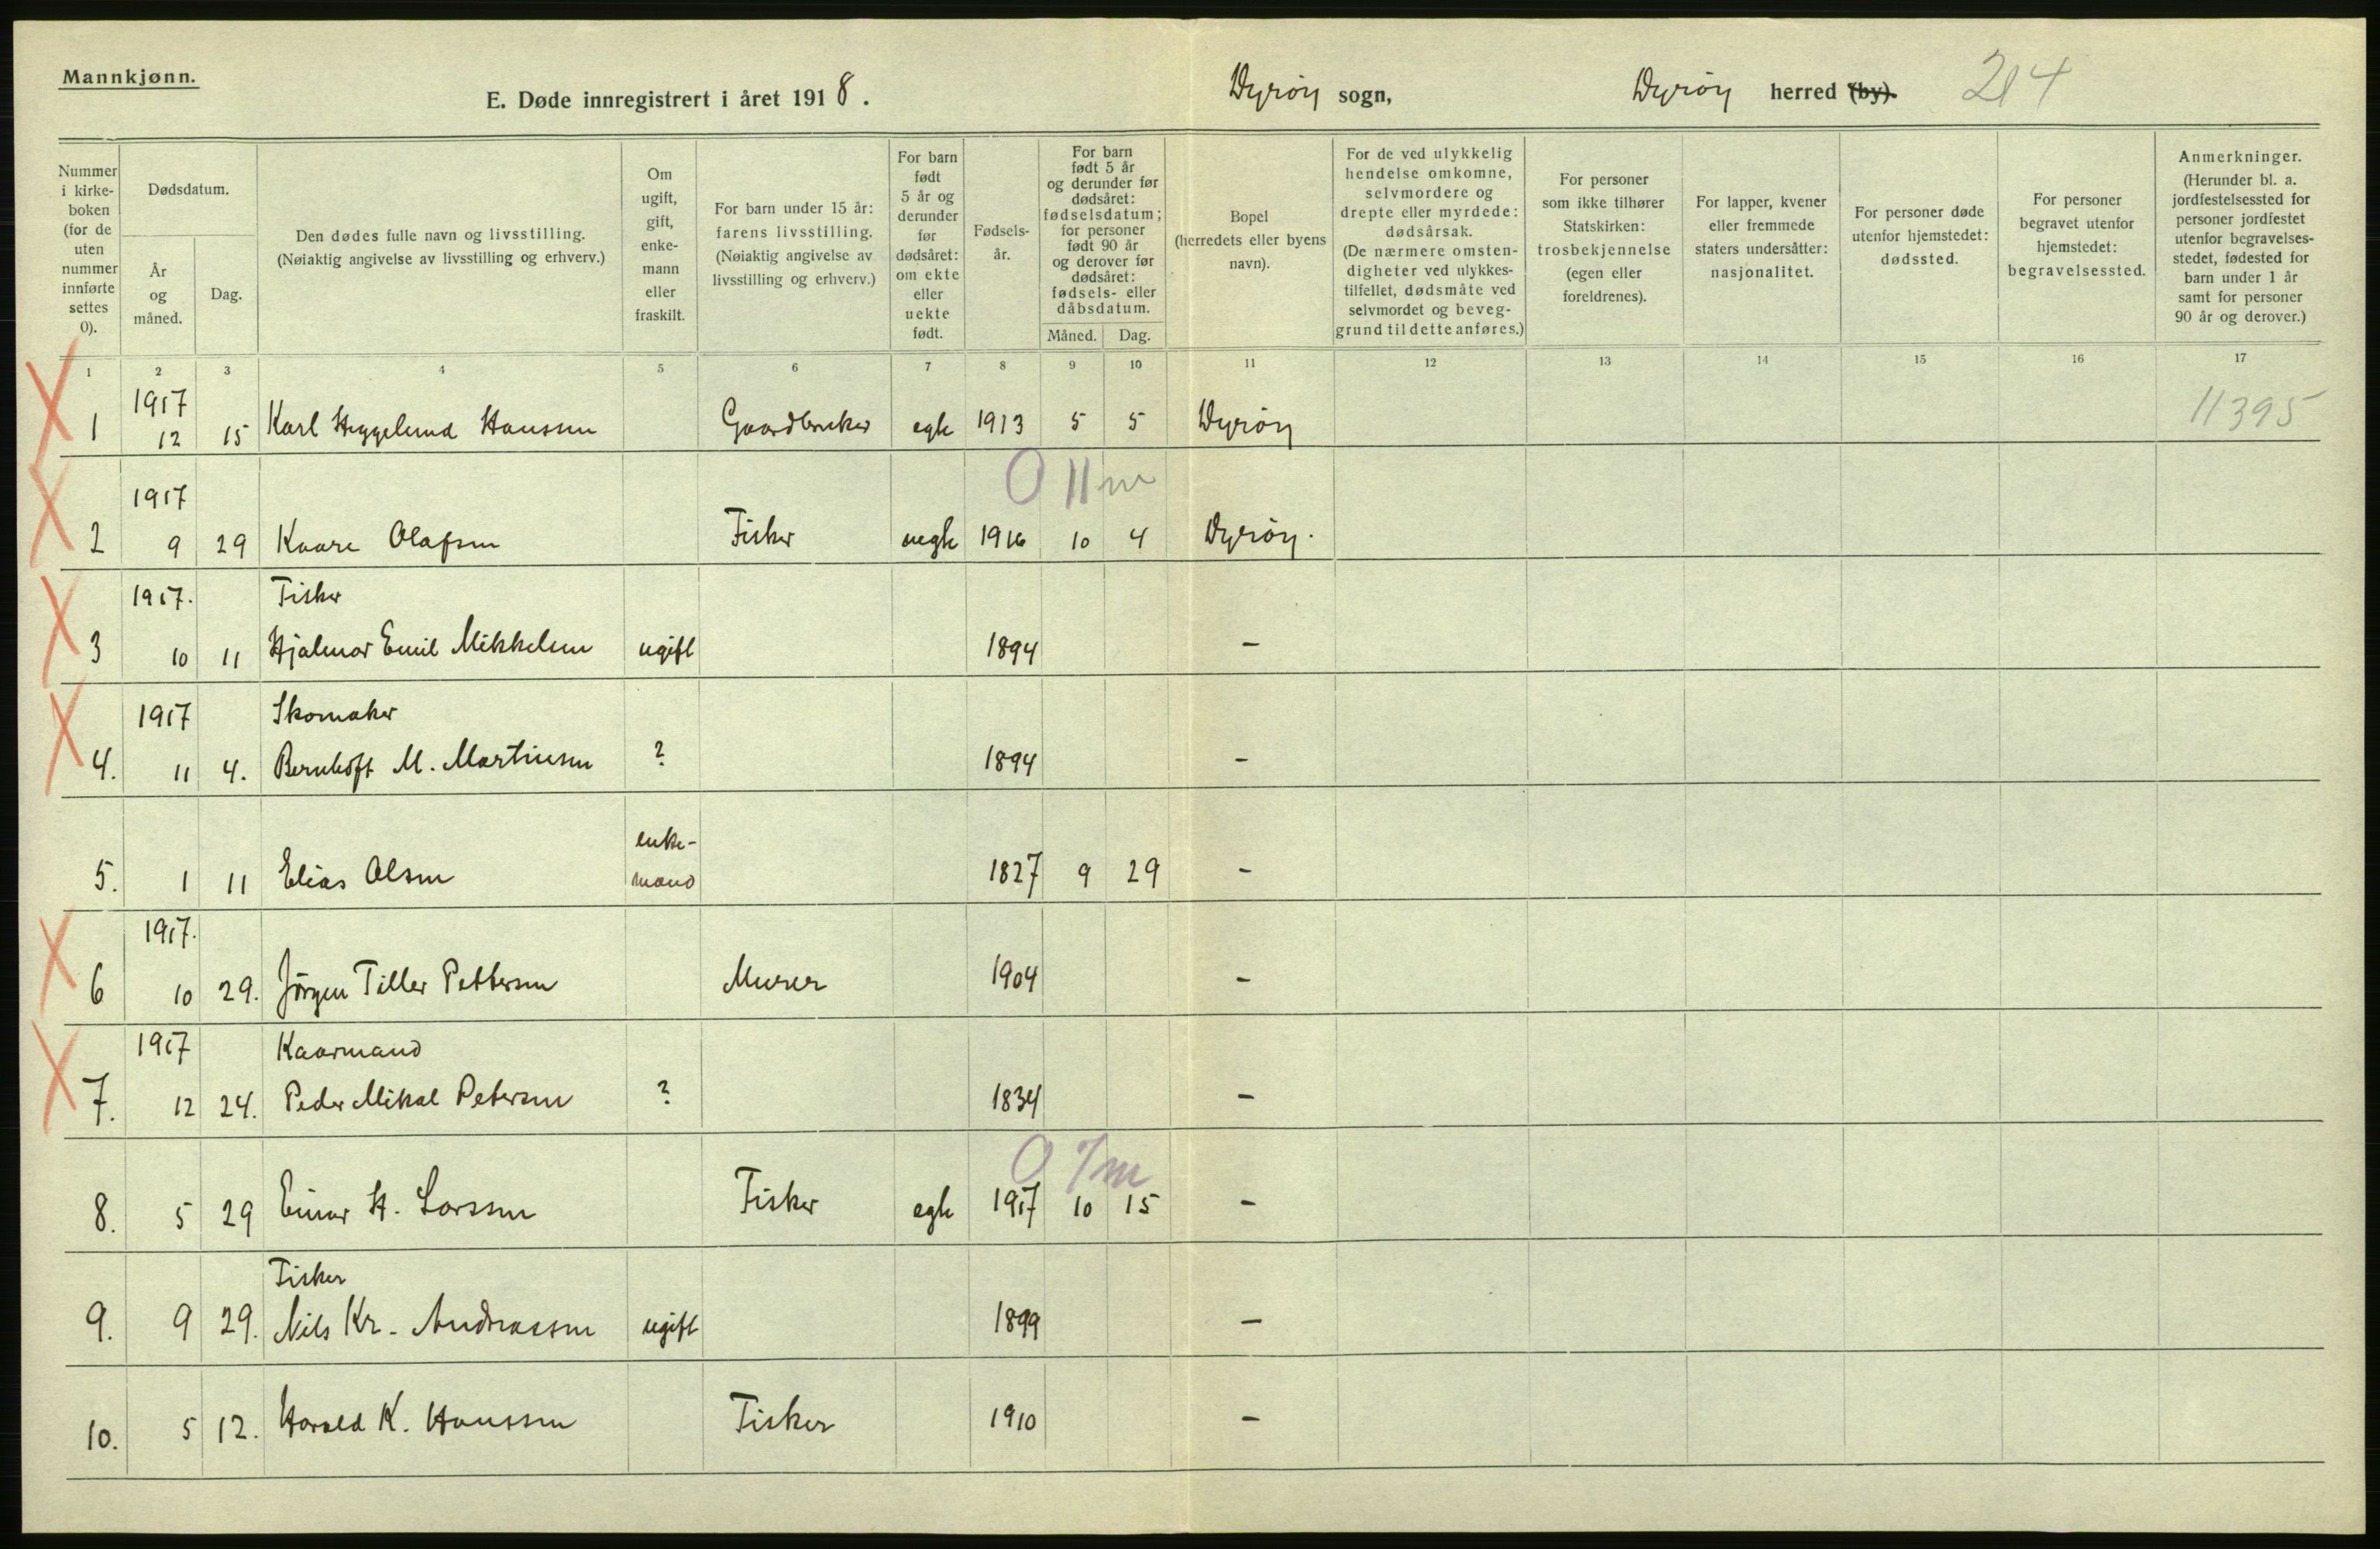 Mannkjønn.
E. Døde innregistrert i året 1918.
Dyrøy sogn,
Dyrøy herred (by).
214
Nummer i kirke-boken (for de uten nummer innførte settes 0).
Dødsdatum.
År og måned.
Dag.
Den dødes fulle navn og livsstilling.
(Nøiaktig angivelse av livsstilling og erhverv.)
Om ugift, gift, enke-mann eller fraskilt.
For barn under 15 år: farens livsstilling. (Nøiaktig angivelse av livsstilling og erhverv.)
For barn født 5 år og derunder før dødsåret: om ekte eller uekte født.
Fødsels-år.
For barn født 5 år og derunder før dødsåret: fødselsdatum; for personer født 90 år og derover før dødsåret: fødsels- eller dåbsdatum.
Måned. Dag.
Bopel (herredets eller byens navn).
For de ved ulykkelig hendelse omkomne, selvmordere og drepte eller myrdede: dødsårsak. (De nærmere omsten-digheter ved ulykkes-tilfellet, dødsmåte ved selvmordet og beveg-grund til dette anføres.)
For personer som ikke tilhører Statskirken: trosbekjennelse (egen eller foreldrenes).
For lapper, kvener eller fremmede staters undersåtter: nasjonalitet.
For personer døde utenfor hjemstedet: dødssted.
For personer begravet utenfor hjemstedet: begravelsessted.
Anmerkninger. (Herunder bl. a. jordfestelsessted for personer jordfestet utenfor begravelses-stedet, fødested for barn under 1 år samt for personer 90 år og derover.)
1 2 3 4 5 6 7 8 9 10 11 12 13 14 15 16 17
1917
1 12 15 Karl Heggelund Hanssen Gaardbruker egte 1913 5 5 Dyrøy 11395
0 11 m
1917
2 9 29 Kaare Olafsen Fisker uegte 1916 10 4 Dyrøy.
1917. Fisker
3 10 11 Hjalmar Emil Mikkelsen ugift 1894 –
1917 Skomaker
4. 11 4. Bernhoft M. Martinsen ? 1894 –
enke-
5. 1 11 Elias Olsen mand 1827 9 29 –
1917.
6 10 29. Jörgen Tiller Pettersen Murer 1904 –
1917 Kaarmand
7. 12 24. Peder Mikal Petersen ? 1834 –
0 7m
8. 5 29 Einar H. Larssen Fisker egte 1917 10 15 –
Fisker
9. 9 29. Nils Kr. Andreassen ugift 1899 –
10. 5 12. Harald K. Hanssen Fisker 1910 –